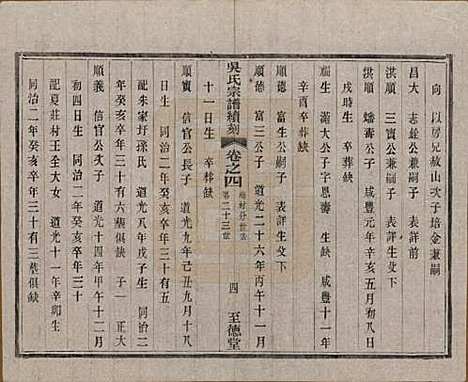 向 以房兄敘山次子培金兼嗣
昌大 志銓公兼嗣子 表詳生父下
洪順 三寶公兼嗣子 表詳生父下
順 蟠壽公子 咸豐元年辛亥五月初八日
戌時生 卒葬缺
福生 滿大公子字恩壽 生缺 咸豐十一年
辛酉卒葬缺
順德 富生公嗣子 表詳生父下
順德 富三公子 道光二十六年丙午十一月
十一日生 卒葬缺
吳氏宗譜續刻 卷之四
第二十三世
四 至德堂
順寶 信官公長子 道光九年己丑九月十八
日生 同治二年癸亥卒年三十有五
配朱家圩孫氏 道光八年戊子生 同治二
年癸亥卒年三十有六墓俱缺 子一 正大
順義 信官公次子 道光十四年甲午十二月
初四日生 同治二年癸亥卒年三十
配夏莊村王全大女 道光十一年辛卯生
同治二年癸亥卒年三十有三墓俱缺